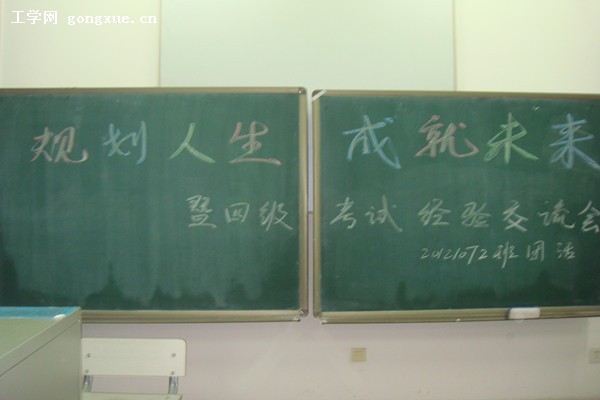 工学网 gongxue.cn
规划人生 成就未来
暨四级 考试 经验交流会
20121072班团活